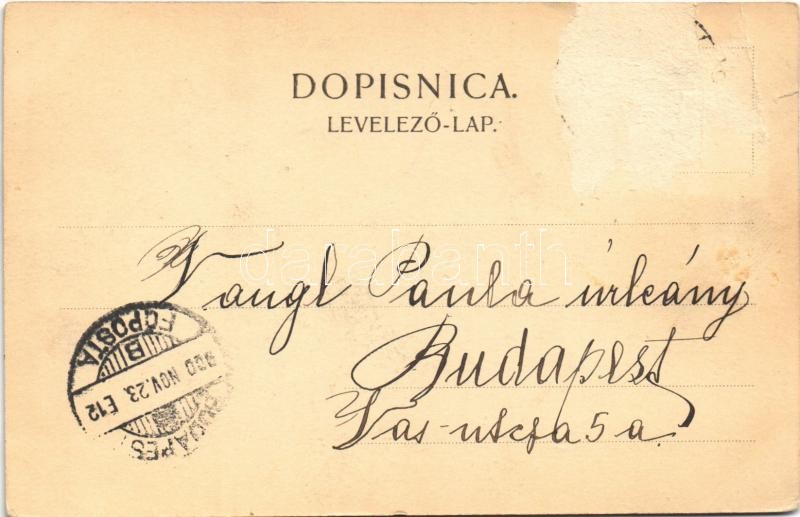 DOPISNICA.
LEVELEZŐ-LAP.
Paula úrleány
Budapest
Vas-utcza 5 a.
BUDAPEST
FŐPOSTA
B
900 NOV. 23. E12
darabanth